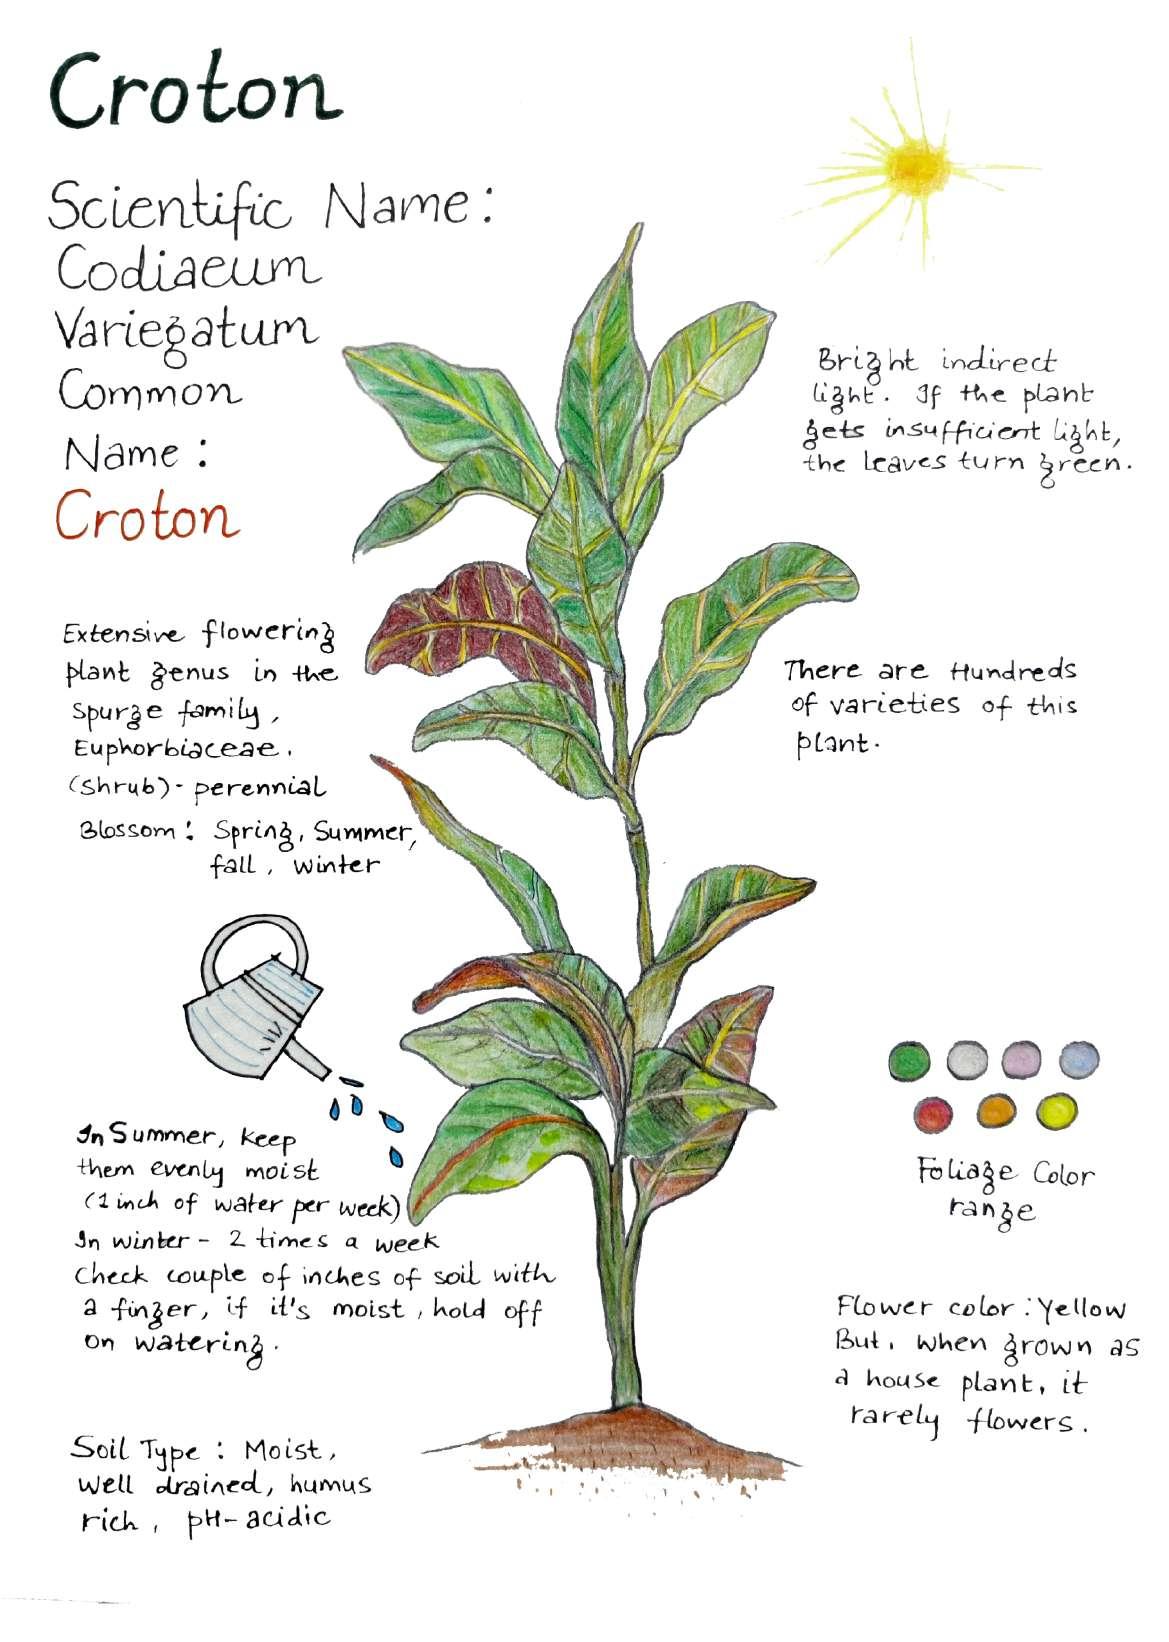 Croton
Scientific Name:
Codiaeum
Variegatum
Common
Name:
Croton
Bright indirect
light. If the plant
gets insufficient light,
the leaves turn green.
Extensive flowering
plant genus in the
Spurge family,
Euphorbiaceae.
(Shrub)- perennial
Blossom: Spring, Summer,
fall, winter
There are Hundreds
of varieties of this
plant.
In Summer, keep
them evenly moist
(1 inch of water per week)
In winter - 2 times a week
Check couple of inches of soil with
a finger, if it's moist, hold off
on watering.
Foliage Color
range
Flower color: Yellow
But, when grown as
a house plant, it
rarely flowers.
Soil Type: Moist,
well drained, humus
rich, pH-acidic